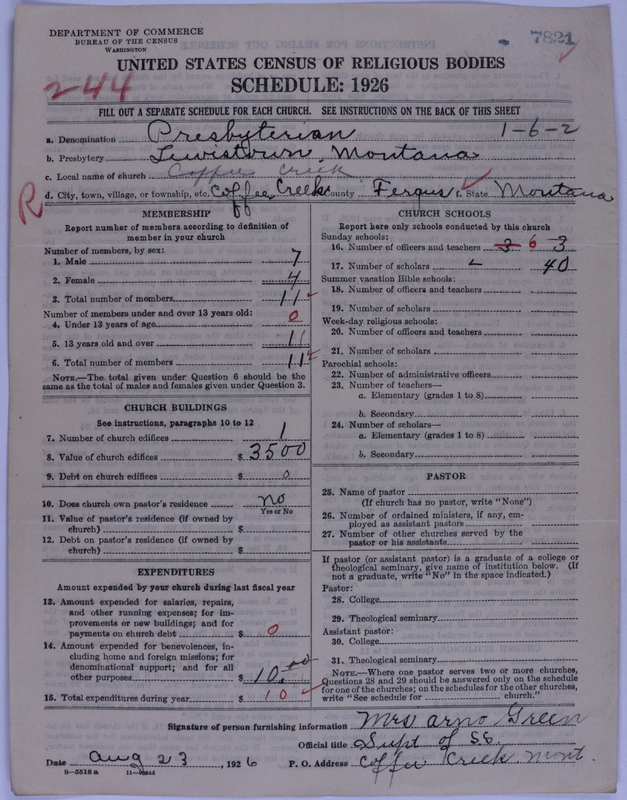 DEPARTMENT OF COMMERCE
BUREAU OF THE CENSUS
WASHINGTON
7821
UNITED STATES CENSUS OF RELIGIOUS BODIES
SCHEDULE: 1926
244
FILL OUT A SEPARATE SCHEDULE FOR EACH CHURCH. SEE INSTRUCTIONS ON THE BACK OF THIS SHEET
a. Denomination Presbyterian 1-6-2
b. Presbytery Lewistown, Montana
c. Local name of church Coffee Creek
d. City, town, village, or township, etc. Coffee Creek County Fergus f. State Montana
R
MEMBERSHIP
Report number of members according to definition of
member in your church
Number of members, by sex:
1. Male 7
2. Female 4
3. Total number of members 11
Number of members under and over 13 years old:
4. Under 13 years of age 0
5. 13 years old and over 11
6. Total number of members 11
NOTE.—The total given under Question 6 should be the
same as the total of males and females given under Question 3.
CHURCH BUILDINGS
See instructions, paragraphs 10 to 12
7. Number of church edifices 1
8. Value of church edifices $ 3500
9. Debt on church edifices $ 0
10. Does church own pastor's residence no
Yes or No
11. Value of pastor's residence (if owned by
church) $
12. Debt on pastor's residence (if owned by
church) $
EXPENDITURES
Amount expended by your church during last fiscal year
13. Amount expended for salaries, repairs,
and other running expenses; for im-
provements or new buildings; and for
payments on church debt $ 0
14. Amount expended for benevolences, in-
cluding home and foreign missions; for
denominational support; and for all
other purposes $ 10.00
15. Total expenditures during year $ 10
CHURCH SCHOOLS
Report here only schools conducted by this church
Sunday schools:
16. Number of officers and teachers 3 6 3
17. Number of scholars 40
Summer vacation Bible schools:
18. Number of officers and teachers
19. Number of scholars
Week-day religious schools:
20. Number of officers and teachers
21. Number of scholars
Parochial schools:
22. Number of administrative officers
23. Number of teachers—
a. Elementary (grades 1 to 8)
b. Secondary
24. Number of scholars—
a. Elementary (grades 1 to 8)
b. Secondary
PASTOR
25. Name of pastor
(If church has no pastor, write "None")
26. Number of ordained ministers, if any, em-
ployed as assistant pastors
27. Number of other churches served by the
pastor or his assistants
If pastor (or assistant pastor) is a graduate of a college or
theological seminary, give name of institution below. (If
not a graduate, write "No" in the space indicated.)
Pastor:
28. College
29. Theological seminary
Assistant pastor:
30. College
31. Theological seminary
NOTE.—Where one pastor serves two or more churches,
Questions 28 and 29 should be answered only on the schedule
for one of the churches; on the schedules for the other churches,
write "See schedule for church."
Signature of person furnishing information Mrs Arno Green
Official title Supt of S.S.
Date Aug 23, 1926 P. O. Address Coffee Creek Mont.
8-5518 a